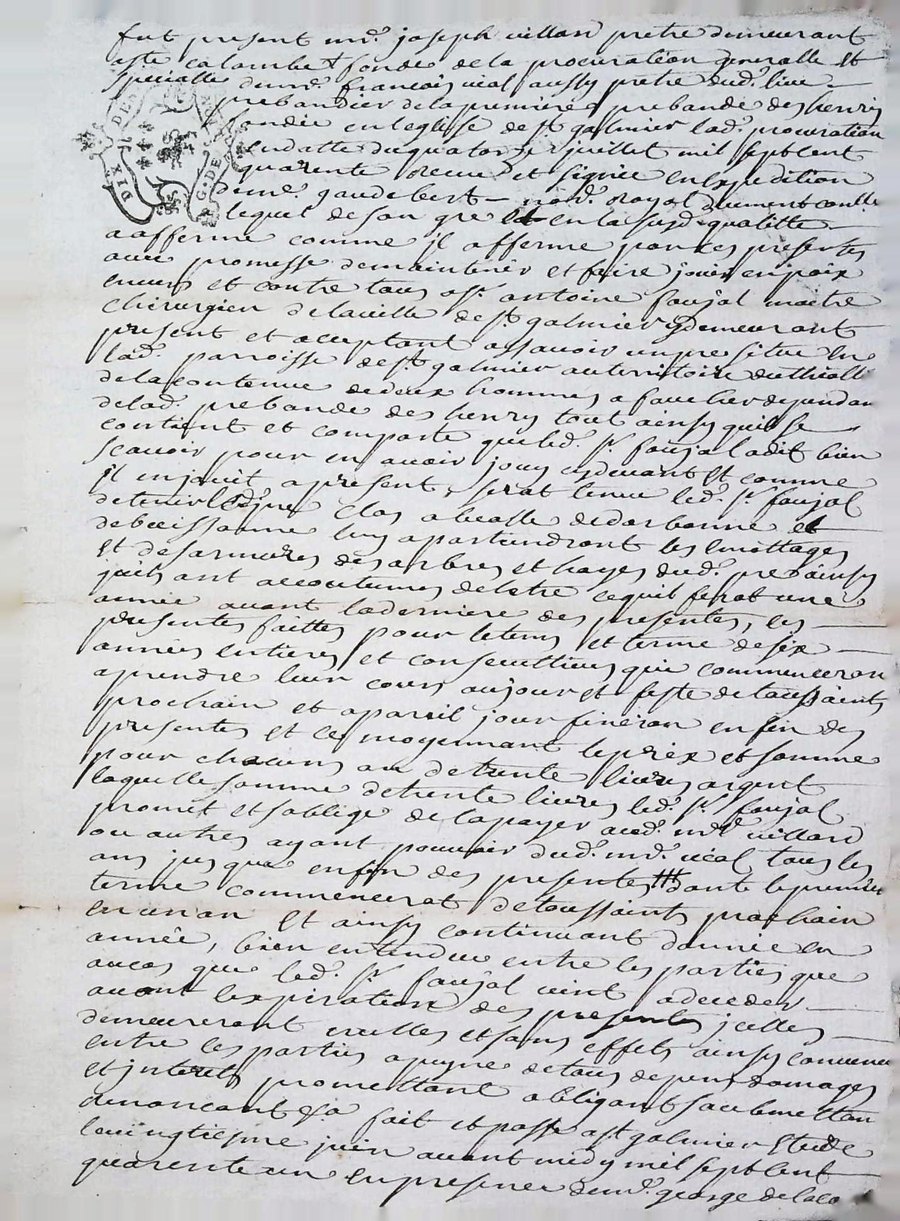 fut present mre. joseph villard pretre demeurant
a st. colombe fondé de la procuration generalle et
specialle de mre. francois vial aussy pretre dud. lieu
prebandier de la premiere prebande des henrys
fondée en leglise de st. galmier lad. procuration
en datte du quatorze juillet mil sept cent
quarente receue et signée en expedition
de me. gaudebert notre. royal duement contllé
lequel de son gré et en la susd. qualitté
a affermé comme il afferme par ces presentes
avec promesse de maintenir et faire jouir en paix
envers et contre tous a sr. antoine faujal maitre
chirurgien de la ville de st. galmier y demeurant
present et acceptant assavoir un pré situé en
lad. parroisse de st. galmier au territoire du
de la contenue de deux hommes a faucher dependan
de lad. prebande des henrys tout ainsy quil se
contient et comporte que led. sr. faujal a dit bien
scavoir pour en avoir jouy cydevant et comme
il en jouit a present, serat tenu led. sr. faujal
de tenir led. pré clos a beaste de corbonne et
de buissonne luy apartiendront les emottages
et desarmures des arbres et hayes dud. pré ainsy
quils ont accoutumés de lestre ce quil ferat une
année avant la derniere des presentes, les
presentes faittes pour le tems et terme de six
années entieres et consecutives qui commenceron
a prendre leur cours au jour et feste de toussaints
prochain et a pareil jour finiron en fin des
presentes et ce moyennant le prix et somme
pour chacun an de trente livres argent
laquelle somme de trente livres led. sr. faujal
promet et soblige de la payer aud. mre. villard
ou autres ayant pouvoir dud. mre. vial tous les
ans jusqua en fin des presentes dont le premier
terme commencerat de toussaints prochain
en un an et ainsy continuant dannée en
année, bien entendu entre les parties que
au cas que led. sr. faujal vint a deceder
avant lexpiration des presentes jcelles
demeureront nulles et sans effets ainsy convenu
entre les parties a peyne de tous depens domages
et jnterets promettant obligant soubmettan
renoncant &a fait et passé a st. galmier etude
le vingtiesme juin avant midy mil sept cent
quarente un en presence de mre. george de laco
DIX DEN
G. DE